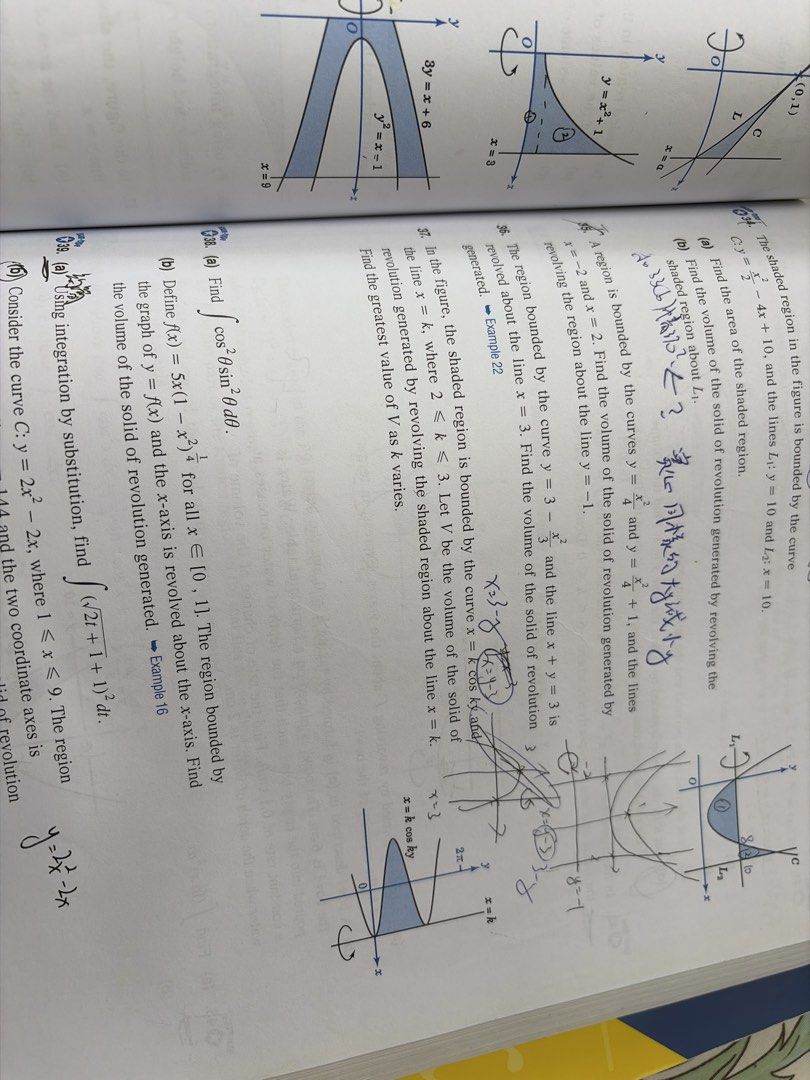 (0, 1)
C
L
O
x = a
y
y = x² + 1
②
①
O
x = 3
x
y
3y = x + 6
y² = x − 1
O
x = 9
x
34. The shaded region in the figure is bounded by the curve
C: y = x²/2 − 4x + 10, and the lines L₁: y = 10 and L₂: x = 10.
(a) Find the area of the shaded region.
(b) Find the volume of the solid of revolution generated by revolving the
shaded region about L₁.
y
C
L₁
①
8
10
L₂
O
x
35. A region is bounded by the curves y = x²/4 and y = x²/4 + 1, and the lines
x = −2 and x = 2. Find the volume of the solid of revolution generated by
revolving the region about the line y = −1.
-2
y=-1
36. The region bounded by the curve y = 3 − x²/3 and the line x + y = 3 is
revolved about the line x = 3. Find the volume of the solid of revolution
generated. ➡ Example 22
x=3-y
3
x=3
37. In the figure, the shaded region is bounded by the curve x = k cos ky and
the line x = k, where 2 ⩽ k ⩽ 3. Let V be the volume of the solid of
revolution generated by revolving the shaded region about the line x = k.
Find the greatest value of V as k varies.
y
x = k
2π
x = k cos ky
0
x
38. (a) Find ∫ cos²θ sin²θ dθ.
(b) Define f(x) = 5x(1 − x²)^¼ for all x ∈ [0 , 1]. The region bounded by
the graph of y = f(x) and the x-axis is revolved about the x-axis. Find
the volume of the solid of revolution generated. ➡ Example 16
39. (a) Using integration by substitution, find ∫ (√2t + 1 + 1)² dt.
(b) Consider the curve C: y = 2x² − 2x, where 1 ⩽ x ⩽ 9. The region
144 and the two coordinate axes is
of revolution
y=2x²-2x